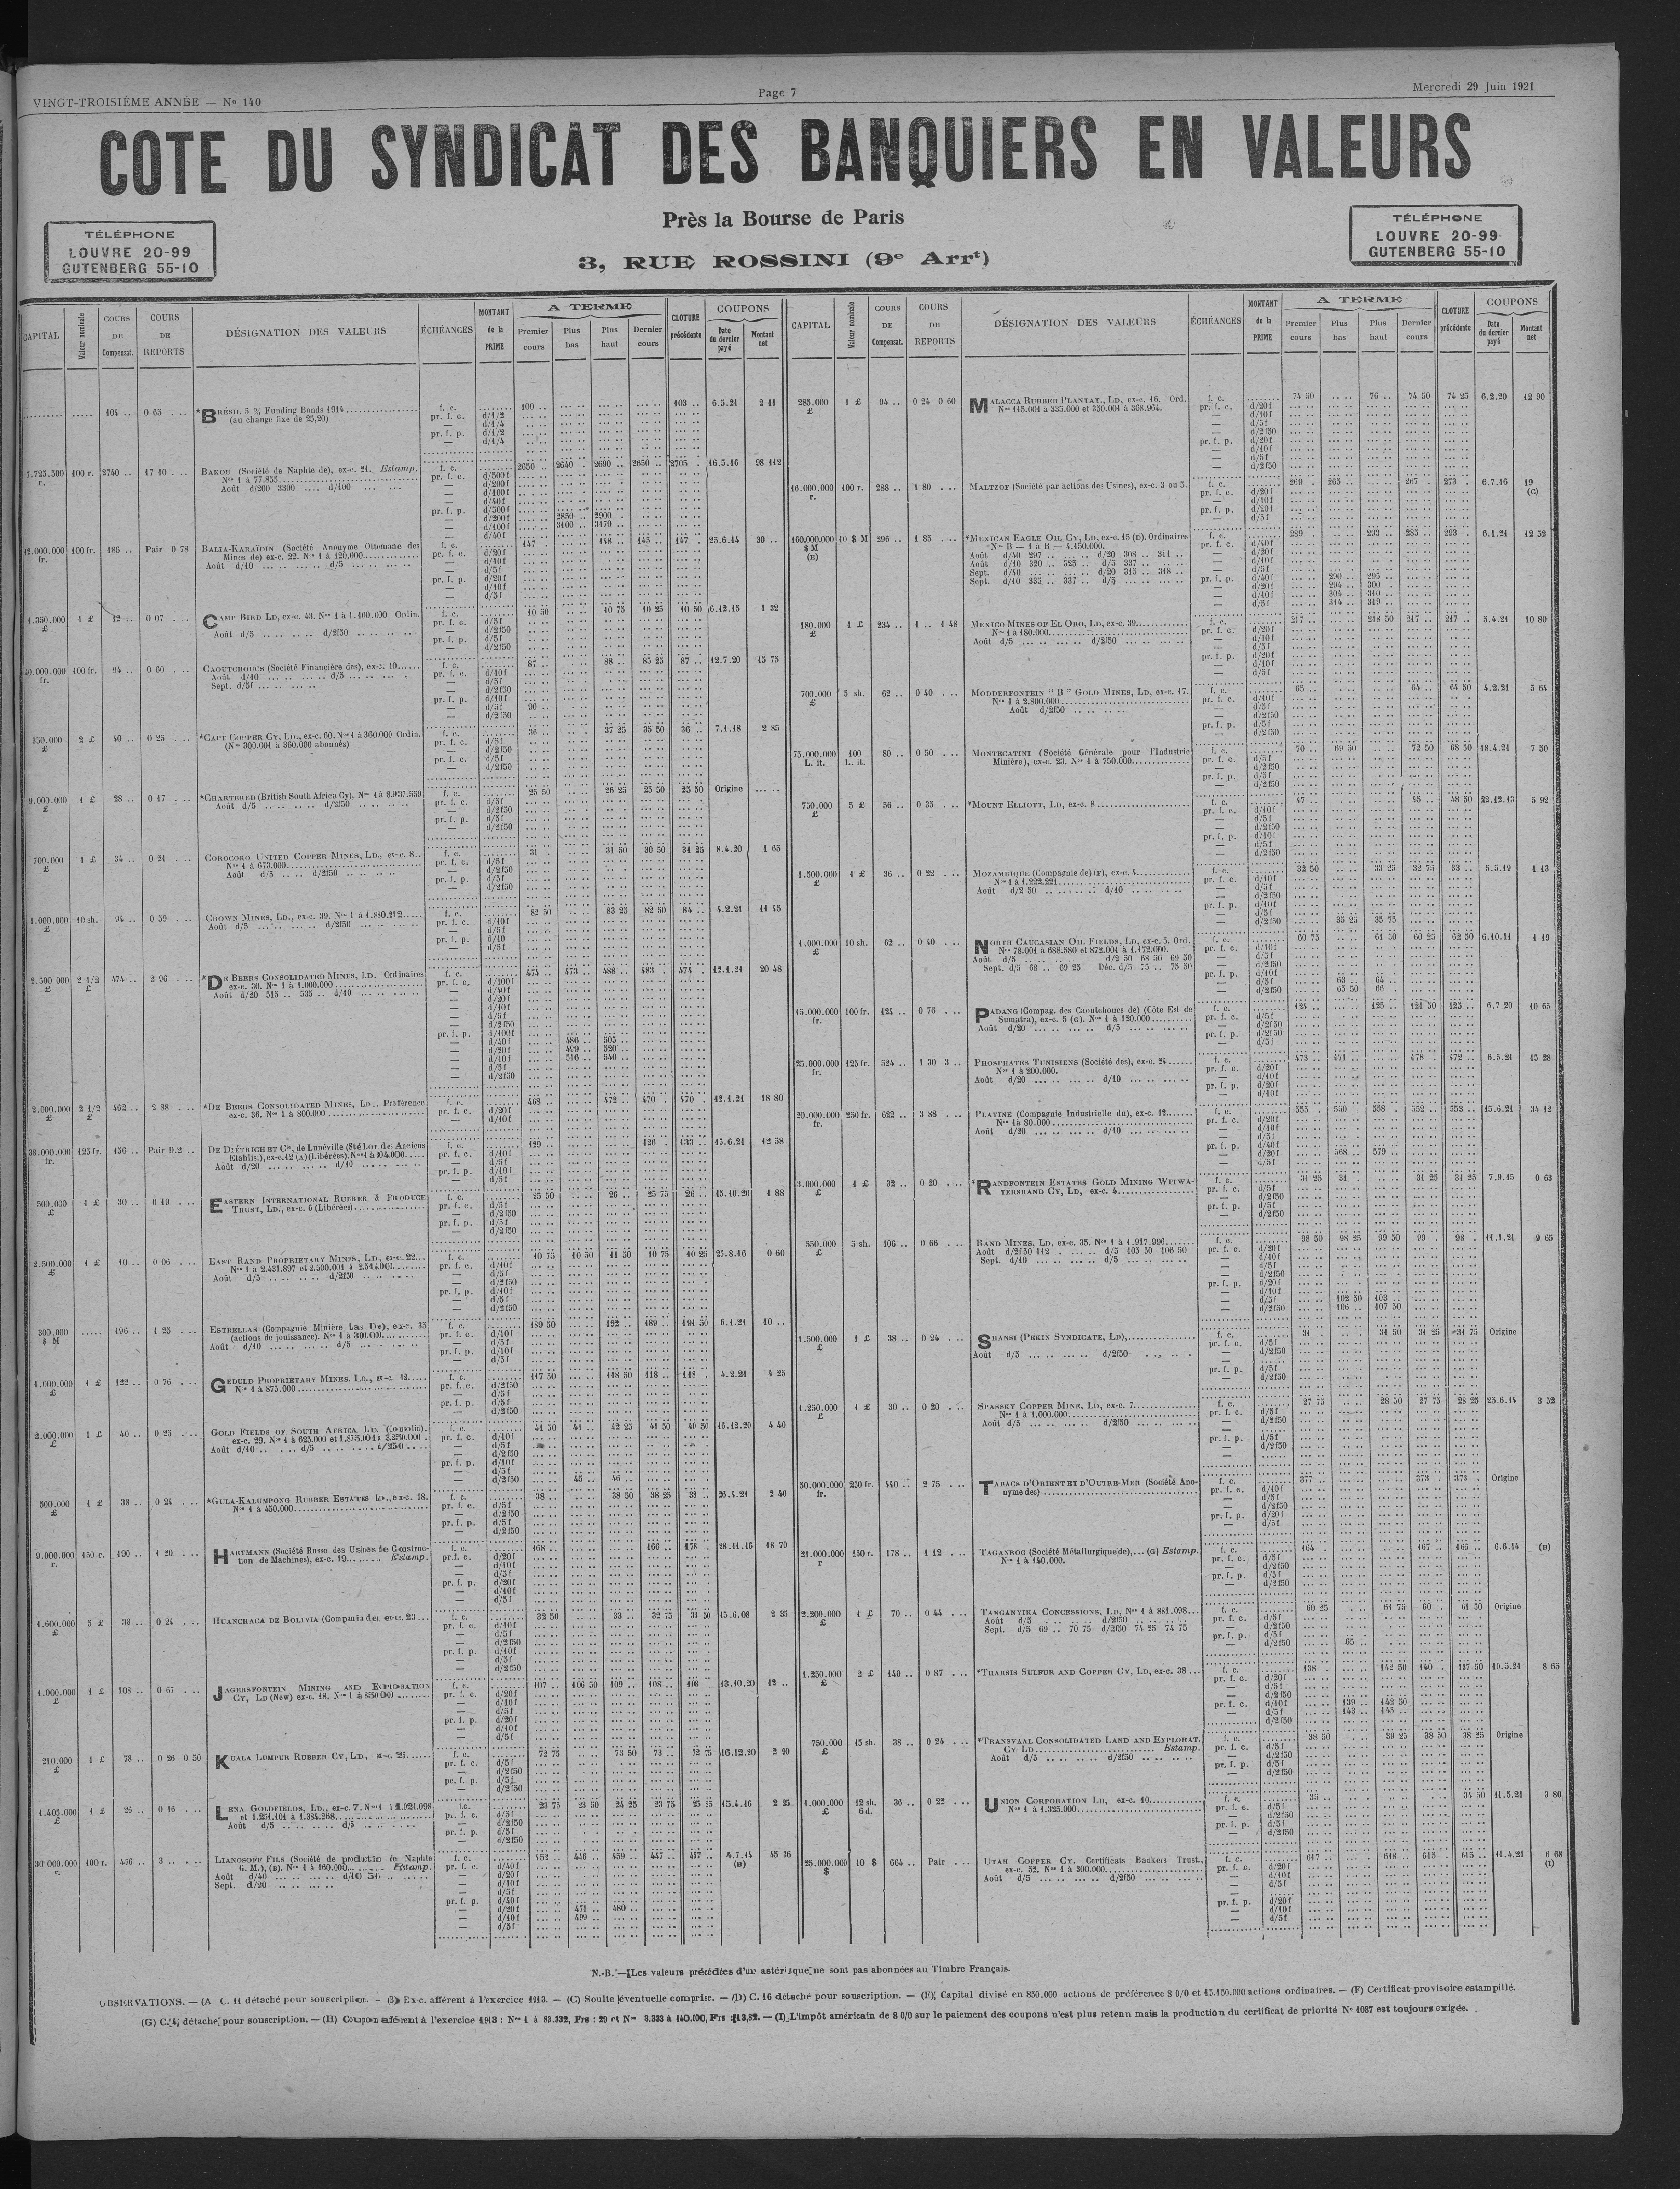 VINGT-TROISIÈME ANNÉE — No 140
Page 7
Mercredi 29 Juin 1921
COTE DU SYNDICAT DES BANQUIERS EN VALEURS
Près la Bourse de Paris
3, RUE ROSSINI (9e Arrt)
TÉLÉPHONE
LOUVRE 20-99
GUTENBERG 55-10
TÉLÉPHONE
LOUVRE 20-99
GUTENBERG 55-10
CAPITAL
Valeur nominale
COURS DE Compensat.
COURS DE REPORTS
DÉSIGNATION DES VALEURS
ÉCHÉANCES
MONTANT de la PRIME
A TERME
Premier cours
Plus bas
Plus haut
Dernier cours
CLOTURE précédente
COUPONS
Date du dernier payé
Montant net
104 .. 0 65 *BRÉSIL 5 % Funding Bonds 1914 f. c. 100 .. 103 .. 6.5.21 2 11
(au change fixe de 25,20)
7.725.500 r. 100 r. 2740 .. 17 10 BAKOU (Société de Naphte de), ex-c. 21. Estamp. f. c. 2650 .. 2640 . 2690 .. 2650 .. 2705 . 16.5.16 98 112
Nos 1 à 77.855
Août d/200 3300 .... d/100
d/200f 2850 .. 2900
d/100f 3100 .. 3170 ..
12.000.000 fr. 100 fr. 186 .. Pair 0 78 BALIA-KARAÏDIN (Société Anonyme Ottomane des f. c. 147 148 .. 145 .. 147 . 25.6.14 30 ..
Mines de) ex-c. 22. Nos 1 à 120.000
Août d/10 d/5
1.350.000 £ 1 £ 12 .. 0 07 CAMP BIRD LD, ex-c. 43. Nos 1 à 1.100.000 Ordin. f. c. 10 50 10 75 10 25 10 50 6.12.15 1 32
Août d/5 d/2f50
40.000.000 fr. 100 fr. 94 .. 0 60 CAOUTCHOUCS (Société Financière des), ex-c. 10 f. c. 87 .. 88 .. 85 25 87 .. 12.7.20 15 75
Août d/10 d/5
Sept. d/5f
d/5f 90 ..
350.000 £ 2 £ 40 .. 0 25 *CAPE COPPER CY, LD., ex-c. 60. Nos 1 à 360.000 Ordin. f. c. 36 .. 37 25 35 50 36 .. 7.1.18 2 85
(Nos 300.001 à 360.000 abonnés)
9.000.000 £ 1 £ 28 .. 0 17 *CHARTERED (British South Africa Cy), Nos 1 à 8.937.559 f. c. 25 50 26 25 25 50 25 50 Origine
Août d/5 d/2f50
700.000 £ 1 £ 34 .. 0 21 COROCORO UNITED COPPER MINES, LD., ex-c. 8 f. c. 31 . 31 50 30 50 31 25 8.4.20 1 65
Nos 1 à 673.000
Août d/5 d/2f50
1.000.000 £ 10 sh. 94 .. 0 59 CROWN MINES, LD., ex-c. 39. Nos 1 à 1.880.212 f. c. 82 50 83 25 82 50 84 .. 4.2.21 11 45
Août d/5 d/2f50
2.500.000 £ 2 1/2 £ 474 .. 2 96 *DE BEERS CONSOLIDATED MINES, LD. Ordinaires f. c. 474 .. 473 .. 488 .. 483 . 474 . 12.1.21 20 48
ex-c. 30. Nos 1 à 1.000.000
Août d/20 515 .. 535 .. d/10
d/40f 486 .. 505 ..
d/20f 499 .. 520 ..
d/10f 516 .. 540 ..
2.000.000 £ 2 1/2 £ 462 .. 2 88 *DE BEERS CONSOLIDATED MINES, LD.. Préférence f. c. 468 .. 472 .. 470 . 470 . 12.1.21 18 80
ex-c. 36. Nos 1 à 800.000
38.000.000 fr. 125 fr. 136 .. Pair D.2 .. DE DIÉTRICH ET Cie, de Lunéville (Sté Lor. des Anciens f. c. 129 126 . 133 .. 15.6.21 12 58
Etablis.), ex-c. 12 (A) (Libérées). Nos 1 à 304.000
Août d/20 d/10
500.000 £ 1 £ 30 .. 0 19 EASTERN INTERNATIONAL RUBBER & PRODUCE f. c. 25 50 26 .. 25 75 26 .. 15.10.20 1 88
TRUST, LD., ex-c. 6 (Libérées)
2.500.000 £ 1 £ 10 .. 0 06 EAST RAND PROPRIETARY MINES, LD., ex-c. 22 f. c. 10 75 10 50 11 50 10 75 10 25 25.8.16 0 60
Nos 1 à 2.431.897 et 2.500.001 à 2.544.000
Août d/5 d/2f50
300.000 $ M 196 .. 1 25 ESTRELLAS (Compagnie Minière Las Dos), ex-c. 35 f. c. 189 50 192 .. 189 .. 191 50 6.1.21 10 ..
(actions de jouissance). Nos 1 à 300.000
Août d/10 d/5
1.000.000 £ 1 £ 122 .. 0 76 GEDULD PROPRIETARY MINES, LD., ex-c. 12 f. c. 117 50 118 50 118 .. 118 . 4.2.21 4 25
Nos 1 à 875.000
2.000.000 £ 1 £ 40 .. 0 25 GOLD FIELDS OF SOUTH AFRICA LD. (Consolid). f. c. 41 50 41 .. 42 25 41 50 40 50 16.12.20 4 40
ex-c. 29. Nos 1 à 625.000 et 1.875.001 à 3.250.000
Août d/10 d/5 d/250
d/2f50 45 .. 46 ..
500.000 £ 1 £ 38 .. 0 24 *GULA-KALUMPONG RUBBER ESTATES LD., ex-c. 18. f. c. 38 .. 38 50 38 25 38 .. 26.4.21 2 40
Nos 1 à 450.000
9.000.000 r. 150 r. 190 .. 1 20 HARTMANN (Société Russe des Usines de Construc- f. c. 168 166 .. 178 .. 28.11.16 18 70
tion de Machines), ex-c. 19. Estamp.
1.600.000 £ 5 £ 38 .. 0 24 HUANCHACA DE BOLIVIA (Compania de, ex-c. 23 f. c. 32 50 33 .. 32 75 33 50 15.6.08 2 35
1.000.000 £ 1 £ 108 .. 0 67 JAGERSFONTEIN MINING AND EXPLORATION f. c. 107 .. 106 50 109 .. 108 .. 108 . 13.10.20 12 ..
CY, LD (New) ex-c. 18. Nos 1 à 850.000
210.000 £ 1 £ 78 .. 0 26 0 50 KUALA LUMPUR RUBBER CY, LD., ex-c. 25 f. c. 72 75 73 50 73 .. 72 75 16.12.20 2 90
1.405.000 £ 1 £ 26 .. 0 16 LENA GOLDFIELDS, LD., ex-c. 7. Nos 1 à 1.021.098 f.c. 23 75 23 50 24 25 23 75 25 25 15.4.16 2 25
et 1.251.101 à 1.384.268
Août d/5 d/5
30 000.000 r. 100 r. 476 .. 3 .. LIANOSOFF FILS (Société de production de Naphte f. c. 451 446 .. 459 .. 447 .. 4.7.14 (B) 45 36
G. M.), (B). Nos 1 à 160.000 Estamp.
Août d/40 d/10 510
Sept. d/20
d/20f 471 .. 480
d/10f 499 ..
CAPITAL
Valeur nominale
COURS DE Compensat.
COURS DE REPORTS
DÉSIGNATION DES VALEURS
ÉCHÉANCES
MONTANT de la PRIME
A TERME
Premier cours
Plus bas
Plus haut
Dernier cours
CLOTURE précédente
COUPONS
Date du dernier payé
Montant net
285.000 £ 1 £ 94 .. 0 24 0 60 MALACCA RUBBER PLANTAT., LD, ex-c. 16. Ord. f. c. 74 50 76 .. 74 50 74 25 6.2.20 12 90
Nos 115.001 à 335.000 et 350.001 à 368.964.
16.000.000 r. 100 r. 288 .. 1 80 MALTZOF (Société par actions des Usines), ex-c. 3 ou 5. f. c. 269 . 265 .. 267 . 273 . 6.7.16 19 (C)
160.000.000 $ M (E) 10 $ M 296 .. 1 85 *MEXICAN EAGLE OIL CY, LD, ex-c. 15 (D). Ordinaires f. c. 289 293 .. 285 .. 293 . 6.1.21 12 52
Nos B — 1 à B — 4.150.000.
Août d/40 297 .. d/20 308 .. 311 ..
Août d/10 320 .. 525 .. d/5 337 ..
Sept. d/40 d/20 315 .. 318 ..
Sept. d/10 335 .. 337 .. d/5
pr. f. p. d/40f 290 .. 295 ..
d/20f 294 .. 300
d/10f 304 .. 310 ..
d/5f 314 .. 319 ..
180.000 £ 1 £ 234 .. 1 .. 1 48 MEXICO MINES OF EL ORO, LD, ex-c. 39 f. c. 217 218 50 217 .. 217 .. 5.4.21 10 80
Nos 1 à 180.000
Août d/5 d/2f50
700.000 £ 5 sh. 62 .. 0 40 MODDERFONTEIN " B " GOLD MINES, LD, ex-c. 17. f. c. 65 64 .. 64 50 4.2.21 5 64
Nos 1 à 2.800.000
Août d/2f50
75.000.000 L. it. 100 L. it. 80 .. 0 50 MONTECATINI (Société Générale pour l'Industrie f. c. 70 .. 69 50 72 50 68 50 18.4.21 7 50
Minière), ex-c. 23. Nos 1 à 750.000
750.000 £ 5 £ 56 .. 0 35 *MOUNT ELLIOTT, LD, ex-c. 8 f. c. 47 45 .. 48 50 22.12.13 5 92
1.500.000 £ 1 £ 36 .. 0 22 MOZAMBIQUE (Compagnie de) (F), ex-c. 4 f. c. 32 50 33 25 32 75 33 .. 5.5.19 1 13
Nos 1 à 1.222.221
Août d/2 50 d/10
d/2f50 35 25 35 75
1.000.000 £ 10 sh. 62 .. 0 40 NORTH CAUCASIAN OIL FIELDS, LD, ex-c. 5. Ord. f. c. 60 75 61 50 60 25 62 50 6.10.11 1 19
Nos 78.001 à 688.580 et 872.001 à 1.172.060.
Août d/5 d/2 50 68 50 69 50
Sept. d/5 68 .. 69 25 Déc. d/5 75 .. 75 50
d/5f 63 .. 64 ..
d/2f50 65 50 66
15.000.000 fr. 100 fr. 124 .. 0 76 PADANG (Compag. des Caoutchoucs de) (Côte Est de f. c. 124 125 .. 121 50 125 .. 6.7 20 10 65
Sumatra), ex-c. 5 (G). Nos 1 à 120.000
Août d/20 d/5
25.000.000 fr. 125 fr. 524 .. 1 30 3 .. PHOSPHATES TUNISIENS (Société des), ex-c. 24 f. c. 473 .. 471 .. 478 . 472 .. 6.5.21 15 28
Nos 1 à 200.000.
Août d/20 d/10
20.000.000 fr. 250 fr. 622 .. 3 88 PLATINE (Compagnie Industrielle du), ex-c. 12 f. c. 555 . 550 558 . 552 .. 553 .. 15.6.21 34 12
Nos 1 à 80.000
Août d/20 d/10
d/20f 568 .. 579 ..
3.000.000 £ 1 £ 32 .. 0 20 *RANDFONTEIN ESTATES GOLD MINING WITWA- f. c. 31 25 31 .. 31 25 31 25 7.9.15 0 63
TERSRAND CY, LD, ex-c. 4
530.000 £ 5 sh. 106 .. 0 66 RAND MINES, LD, ex-c. 35. Nos 1 à 1.917.996 f. c. 98 50 98 25 99 50 99 . 98 . 11.1.21 9 65
Août d/2f50 112 d/5 105 50 106 50
Sept. d/10 d/5
d/5f 102 50 103 ..
d/2f50 106 .. 107 50
1.500.000 £ 1 £ 38 .. 0 24 SHANSI (PEKIN SYNDICATE, LD), f. c. 31 31 50 31 25 31 75 Origine
Août d/5 d/2f50
1.250.000 £ 1 £ 30 .. 0 20 SPASSKY COPPER MINE, LD, ex-c. 7 f. c. 27 75 28 50 27 75 28 25 25.6.14 3 52
Nos 1 à 1.000.000
Août d/5 d/2f50
50.000.000 fr. 250 fr. 440 .. 2 75 TABACS D'ORIENT ET D'OUTRE-MER (Société Ano- f. c. 377 373 . 373 . Origine
nyme des)
21.000.000 r 150 r. 178 .. 1 12 TAGANROG (Société Métallurgique de),... (G) Estamp. f. c. 164 167 .. 166 .. 6.6.14 (H)
Nos 1 à 140.000.
2.200.000 £ 1 £ 70 .. 0 44 TANGANYIKA CONCESSIONS, LD, Nos 1 à 881.098 f. c. 60 25 61 75 60 . 61 50 Origine
Août d/5 d/2f50
Sept. d/5 69 .. 70 75 d/2f50 74 25 74 75
d/2f50 65 ..
1.250.000 £ 2 £ 140 .. 0 87 *THARSIS SULFUR AND COPPER CY, LD, ex-c. 38 f. c. 138 142 50 140 . 137 50 10.5.21 8 65
d/10f 139 .. 142 50
d/5f 143 .. 145 ..
750.000 £ 15 sh. 38 .. 0 24 *TRANSVAAL CONSOLIDATED LAND AND EXPLORAT. f. c. 38 50 39 25 38 50 38 25 Origine
CY LD Estamp.
Août d/5 d/2f50
1.000.000 £ 12 sh. 6 d. 36 .. 0 22 UNION CORPORATION LD, ex-c. 10 f. c. 35 34 50 11.5.21 3 80
Nos 1 à 1.325.000
25.000.000 $ 10 $ 664 .. Pair UTAH COPPER CY. Certificats Bankers Trust., f. c. 617 618 .. 615 .. 615 .. 11.4.21 6 68 (I)
ex-c. 52. Nos 1 à 300.000
Août d/5 d/2f50
N.-B. — Les valeurs précédées d'un astérisque ne sont pas abonnées au Timbre Français.
OBSERVATIONS. — (A C. 11 détaché pour souscription. - (B) Ex-c. afférent à l'exercice 1913. — (C) Soulte éventuelle comprise. — (D) C. 16 détaché pour souscription. — (E) Capital divisé en 850.000 actions de préférence 8 0/0 et 15.150.000 actions ordinaires. — (F) Certificat provisoire estampillé.
(G) C. 4 détaché pour souscription. — (H) Coupon afférent à l'exercice 1913 : Nos 1 à 83.332, Frs : 29 et Nos 3.333 à 140.000, Frs : 13,82. — (I) L'impôt américain de 8 0/0 sur le paiement des coupons n'est plus retenu mais la production du certificat de priorité No 1087 est toujours exigée.